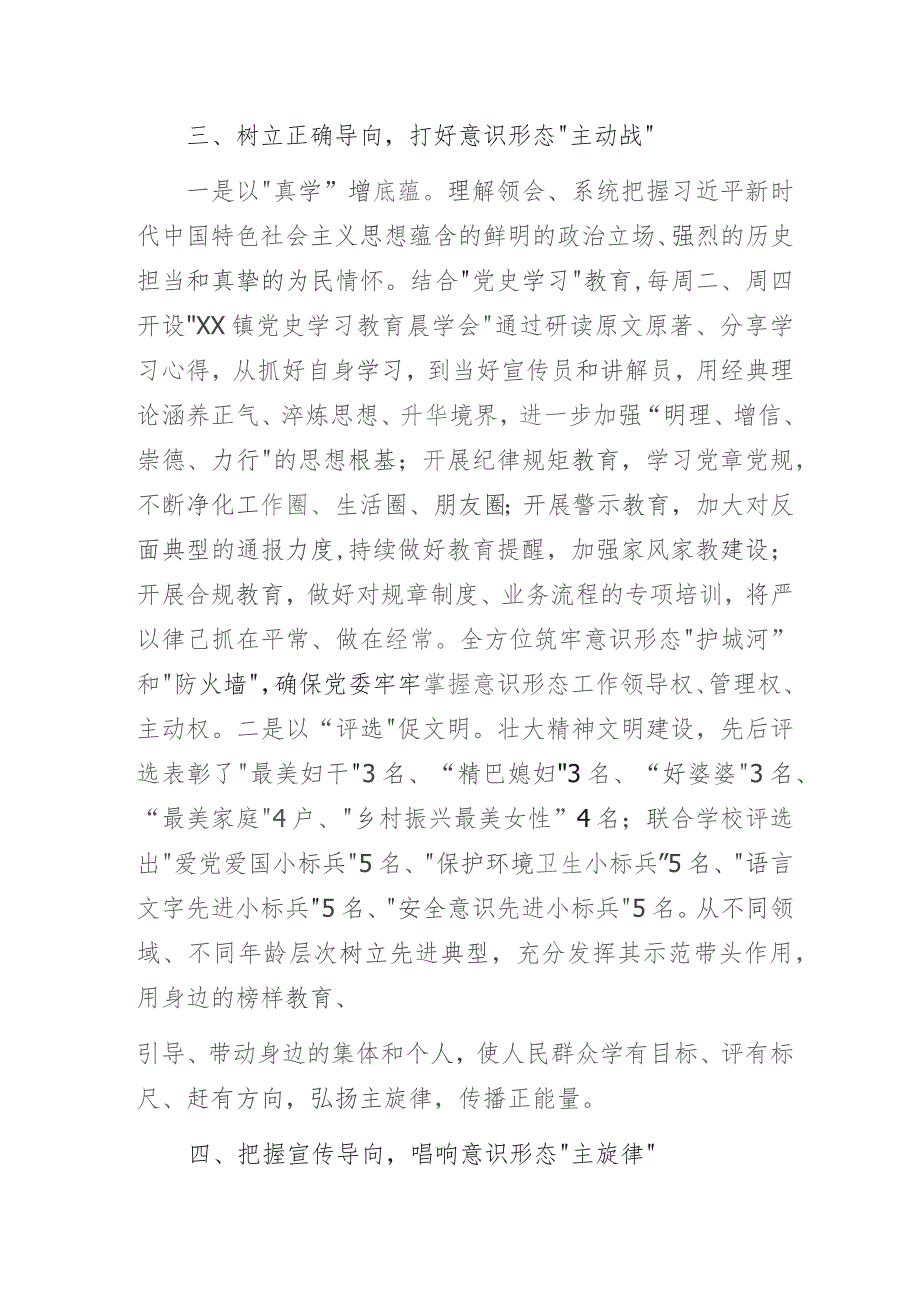 三、树立正确导向，打好意识形态"主动战"
一是以"真学”增底蕴。理解领会、系统把握习近平新时
代中国特色社会主义思想蕴含的鲜明的政治立场、强烈的历史
担当和真挚的为民情怀。结合"党史学习"教育，每周二、周四
开设"XX 镇党史学习教育晨学会"通过研读原文原著、分享学
习心得，从抓好自身学习，到当好宣传员和讲解员，用经典理
论涵养正气、淬炼思想、升华境界，进一步加强“明理、增信、
崇德、力行"的思想根基；开展纪律规矩教育，学习党章党规，
不断净化工作圈、生活圈、朋友圈；开展警示教育，加大对反
面典型的通报力度,持续做好教育提醒，加强家风家教建设；
开展合规教育，做好对规章制度、业务流程的专项培训，将严
以律己抓在平常、做在经常。全方位筑牢意识形态"护城河”
和"防火墙",确保党委牢牢掌握意识形态工作领导权、管理权、
主动权。二是以“评选"促文明。壮大精神文明建设，先后评
选表彰了"最美妇干"3 名、“精巴媳妇"3 名、“好婆婆"3 名、
“最美家庭"4 户、"乡村振兴最美女性”4 名；联合学校评选
出"爱党爱国小标兵"5 名、"保护环境卫生小标兵”5 名、"语言
文字先进小标兵"5 名、"安全意识先进小标兵"5 名。从不同领
域、不同年龄层次树立先进典型，充分发挥其示范带头作用，
用身边的榜样教育、
引导、带动身边的集体和个人，使人民群众学有目标、评有标
尺、赶有方向，弘扬主旋律，传播正能量。
四、把握宣传导向，唱响意识形态"主旋律"